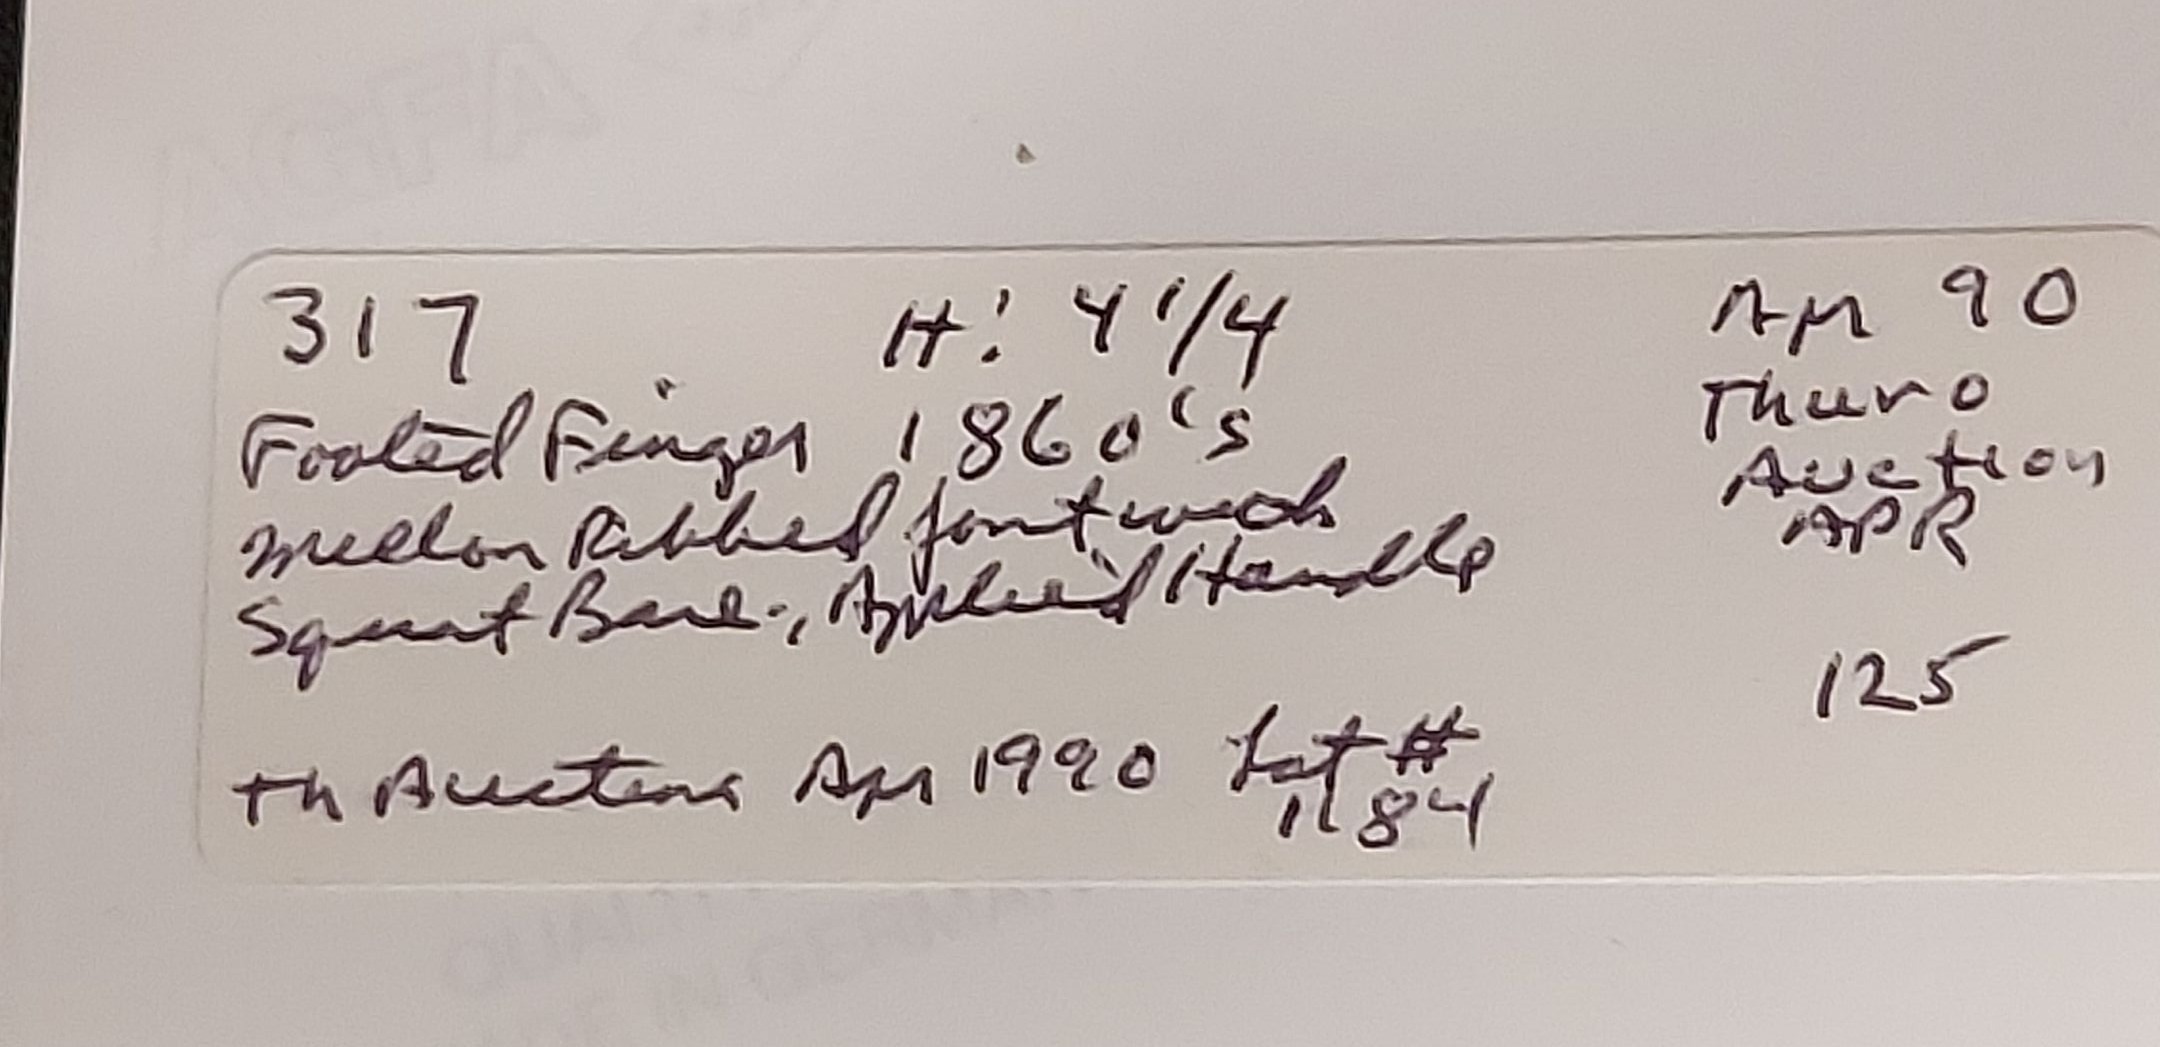 317 H: 4 1/4 Apr 90
Footed Finger 1860's Thuro
Mellon Ribbed font with Auction
Squat Base, Applied Handle APR
125
Th Auctions Apr 1990 Lot #
1184